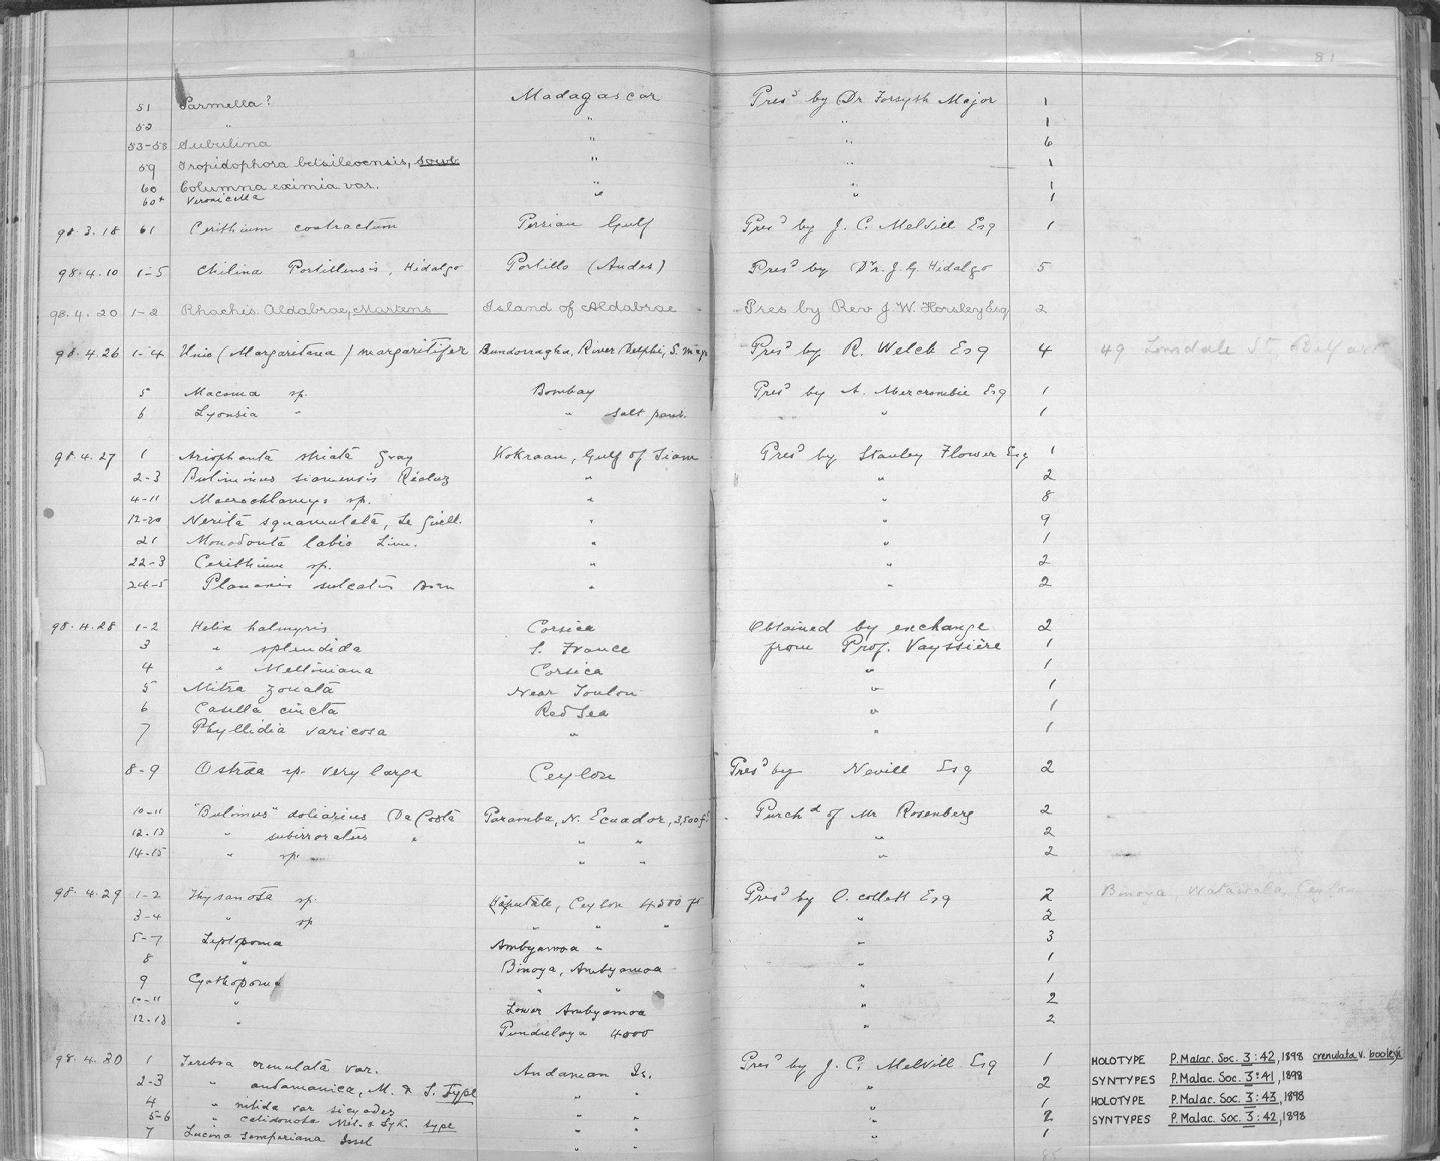 81
51 Parmella? Madagascar Pres^d by Dr Forsyth Major 1
52 " " " 1
53-58 Subulina " " 6
59 Tropidophora betsileoensis, Sowb " " 1
60 Columna eximia var. " " 1
60+ Veronicella " " 1
98.3.18 61 Cerithium contractum Persian Gulf Pres^d by J. C. Melvill Esq 1
98.4.10 1-5 Chilina Portillensis, Hidalgo Portillo (Andes) Pres^d by Dr. J. G. Hidalgo 5
98.4.20 1-2 Rhachis Aldabrae, Martens Island of Aldabrae Pres by Rev J. W. Horsley Esq 2
98.4.26 1-4 Unio (Margaritana) margaritifer Bundorragha, River Delphi, S. Mayo Pres^d by R. Welch Esq 4 49 Lonsdale St, Belfast
5 Macoma sp. Bombay Pres^d by A. Abercrombie Esq 1
6 Lyonsia " " Salt pans. " 1
98.4.27 1 Ariophanta striata Gray Kokraan, Gulf of Siam Pres^d by Stanley Flower Esq 1
2-3 Buliminus siamensis Redluz " " 2
4-11 Macrochlamys sp. " " 8
12-20 Nerita squamulata, Le Guill. " " 9
21 Monodonta labio Linn. " " 1
22-3 Cerithium sp. " " 2
24-5 Planaxis sulcatus Born " " 2
98.4.28 1-2 Helix halmyris Corsica Obtained by exchange 2
3 " splendida S. France from Prof. Vayssière 1
4 " Melliniana Corsica " 1
5 Mitra zonata Near Toulon " 1
6 Casella cincta Red Sea " 1
7 Phyllidia varicosa " " 1
8-9 Ostrea sp. very large Ceylon Pres^d by Nevill Esq 2
10-11 "Bulimus" doliarius Da Costa Paramba, N. Ecuador, 3,500 ft Purch^d of Mr Rosenberg 2
12-13 " subirroratus " " " " 2
14-15 " sp. " " " 2
98.4.29 1-2 Thysanota sp. Haputale, Ceylon 4500 ft Pres^d by O. Collett Esq 2 Binoya, Watawala, Ceylon
3-4 " sp " " " " 2
5-7 Leptopoma Ambyamoa " " 3
8 " Binoya, Ambyamoa " 1
9 Cyathopoma " " " 1
10-11 " Lower Ambyamoa " 2
12-13 " Pundeloya 4000 " 2
98.4.30 1 Terebra crenulata var. Andaman Is. Pres^d by J. C. Melvill Esq 1 HOLOTYPE P. Malac. Soc. 3:42, 1898 crenulata v. booleyi
2-3 " andamanica, M. & S. Type " " " 2 SYNTYPES P. Malac. Soc. 3:41, 1898
4 " nitida var sicyodes " " " 1 HOLOTYPE P. Malac. Soc. 3:43, 1898
5-6 " celidonota Mel. & Syk. type " " " 2 SYNTYPES P. Malac. Soc. 3:42, 1898
7 Lucina semperiana Issel " " " 1
85